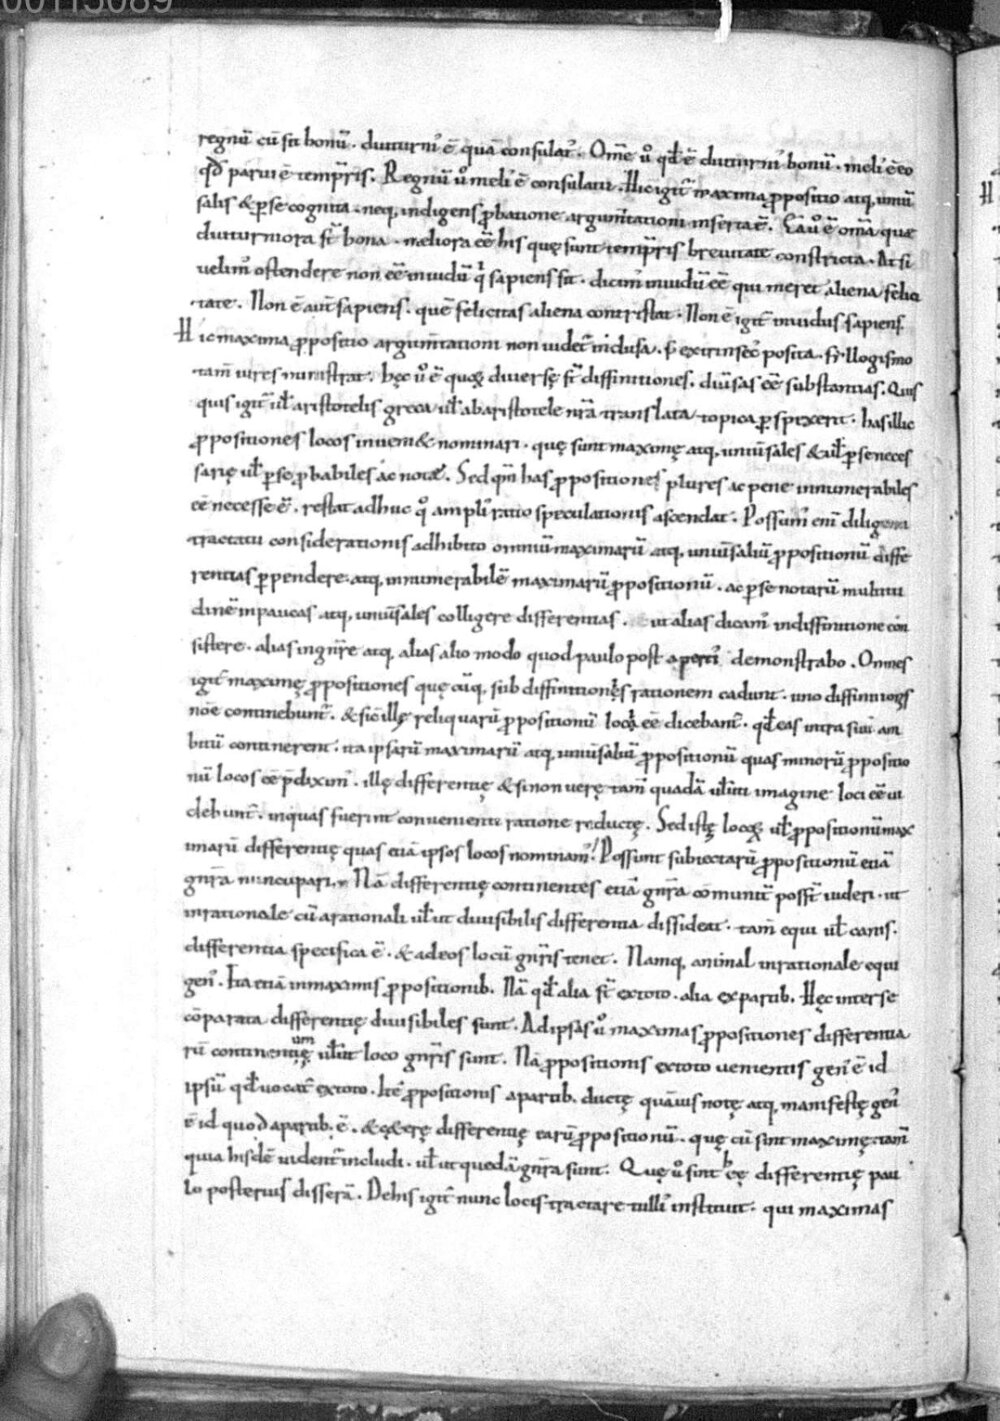 00115089
regnū cū sit bonū. diuturni᷒ ē quā consulat᷒. Om̄e u᷒o qđ ē diuturni᷒ bonū. meli᷒ ē eo
qđ parui ē temp̄ris. Regnū u᷒o meli᷒ ē consulatu. Hic igit᷒ maxima ꝓpositio atq; uniu͛
salis & ꝑ se cognita. neq; indigens ꝓbatione argum̄tationi inserta ē. Ea u᷒o ē om̄a quae
diuturniora st̄ bona. meliora eē his quę sunt temp̄ris breuitate constricta. At si
uelim᷒ ostendere non eē inuidū qͥ sapiens sit. dicim᷒ inuidū eē qui meret aliena felici
tate. Non ē aut̄ sapiens. quē felicitas aliena contristat. Non ē igit᷒ inuidus sapiens.
Hic maxima ꝓpositio argum̄tationi non uidet᷒ inclusa. s; extrinsec᷒ posita. syllogismo
tam̄ uires ministrat. hęc u᷒o ē quoꝝ diuersę st̄ diffinitiones. diu͛sas eē substantias. Quis
quis igit᷒ uł aristotelis greca uł ab aristotele nr̄a translata topica ꝑspexerit. has illic
ꝓpositiones locos inueni& nominari. quę sunt maximę atq; uniu͛sales & uł ꝑ se neces
sarię uł ꝑ se ꝓbabiles ac notæ. Sed qm̄ has ꝓpositiones plures ac pene innumerabiles
eē necesse ē. restat adhuc qͦ ampli᷒ ratio speculationis ascendat. Possum᷒ eni᷒ diligenti
tractatu considerationis adhibito omniū maximarū atq; uniu͛saliū ꝓpositionū diffe
rentias ꝑpendere. atq; innumerabilē maximarū ꝓpositionū. ac ꝑ se notarū multitu
dinē in paucas atq; uniu͛sales colligere differentias. ut alias dicam᷒ in diffinitione con
sistere. alias in gn̄re atq; alias alio modo quod paulo post aperti᷒ demonstrabo. Omnes
igit᷒ maximę ꝓpositiones quę cūq; sub diffinitionis rationem cadunt. uno diffinitionis
nōe continebunt᷒. & sic illę reliquarū ꝓpositionū loca eē dicebant᷒. qđ eas intra suū am
bitū continerent. ita ipsarū maximarū atq; uniu͛saliū ꝓpositionū quas minorū ꝓpositio
nū locos eē p̄dixim᷒. illę differentię & si non uerę tam̄ quadā uł uti imagine loci eē ui
debunt᷒. in quas fuerint conuenienti ratione reductę. Sed istę locoꝝ uł ꝓpositionū max
imarū differentię quas etiā ipsos locos nominam᷒! Possunt subiectarū ꝓpositionū etiā
gn̄ra nuncupari. Nā differentię continentes etiā gn̄ra cōmunit᷒ posst̄ uideri. ut
inrationale cū a rationali uł ut diuisibilis differentia dissideat. tam̄ equi uł canis.
differentia specifica ē. & ad eos locū gn̄ris tenet. Namq; animal inrationale equi
gen᷒. Ita etiā in maximis ꝓpositionib;. Nā qđ alia st̄ ex toto. alia ex partib;. Hęc inter se
cōparata differentię diuisibiles sunt. Ad ipsas u᷒o maximas ꝓpositiones differentia
rū continentię uł ut loco gn̄ris sunt. Nā ꝓpositionis ex toto uenientis gen᷒ ē id
ipsū qđ uocat᷒ ex toto. Itē ꝓpositionis a partib; ductę quāuis notę atq; manifestę gen᷒
ē id quod a partib; ē. & cęterę differentię earū ꝓpositionū. quę cū sint maximę tam̄
quia hisdē uident᷒ includi. uł ut quedā gn̄ra sunt. Quę u᷒o sint hę differentię pau
lo posterius disserā. De his igit᷒ nunc locis tractare tulli᷒ instituit. qui maximas